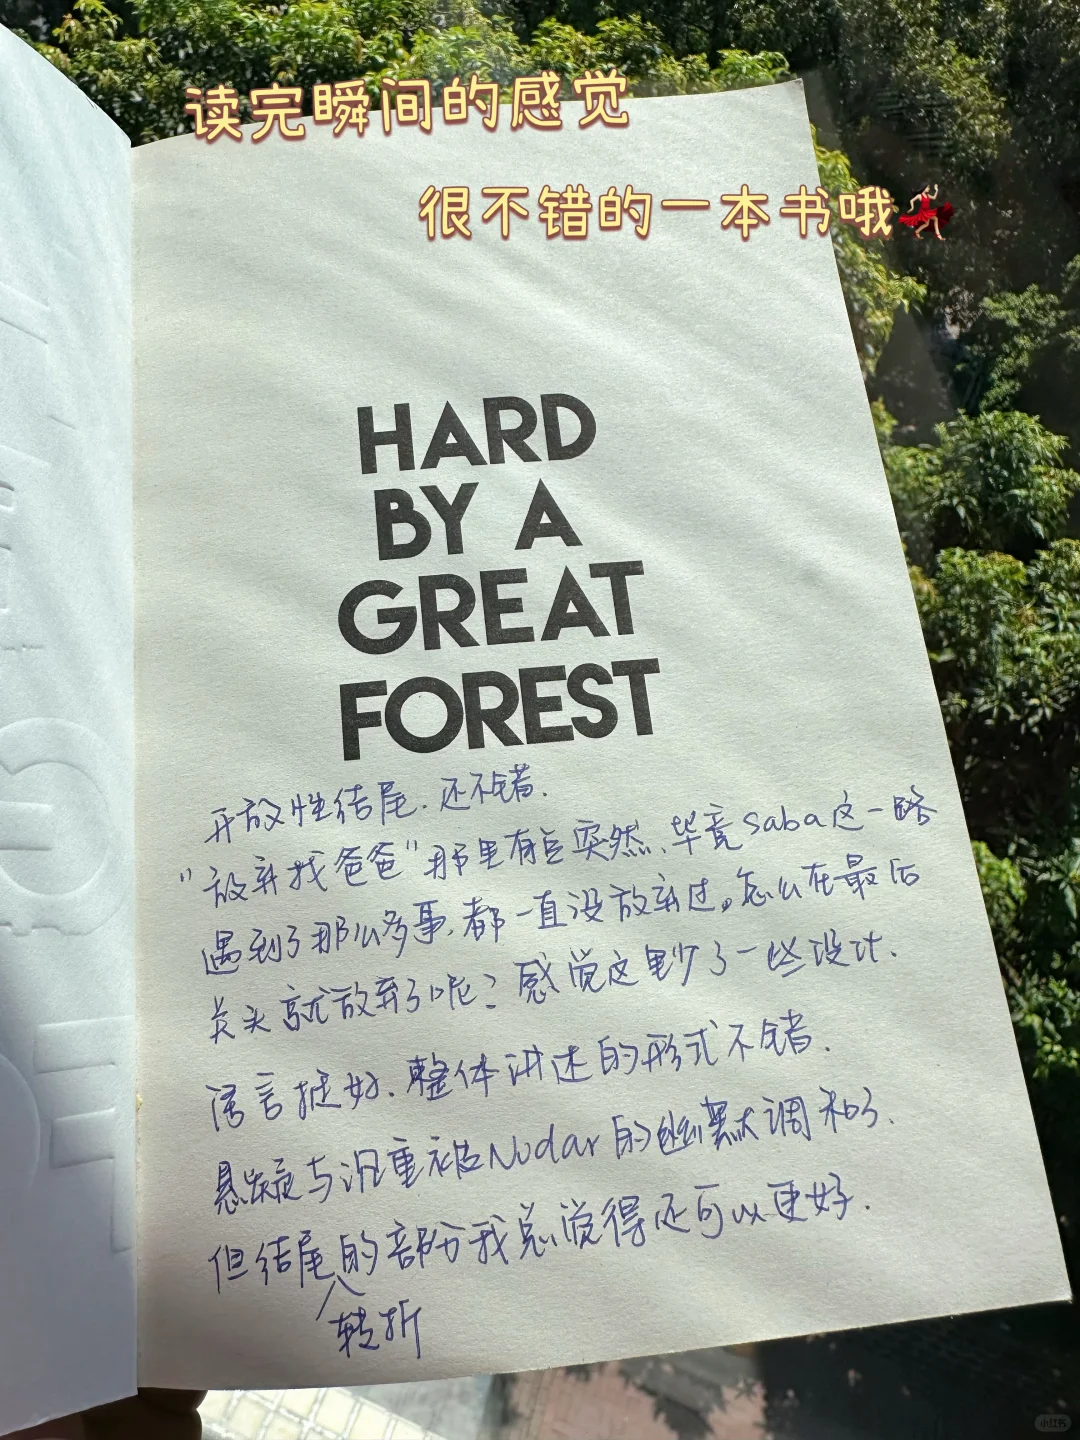 读完瞬间的感觉
很不错的一本书哦
HARD
BY A
GREAT
FOREST
开放性结尾. 还不错.
“放弃找爸爸”那里有点突然、毕竟saba这一路
遇到了那么多事, 都一直没放弃过。怎么在最后
关头就放弃了呢? 感觉这里少了一些设计.
语言挺好. 整体讲述的形式不错.
悬疑与沉重被Nodar的幽默调和了.
但结尾的部分我总觉得还可以更好.
转折
小红书